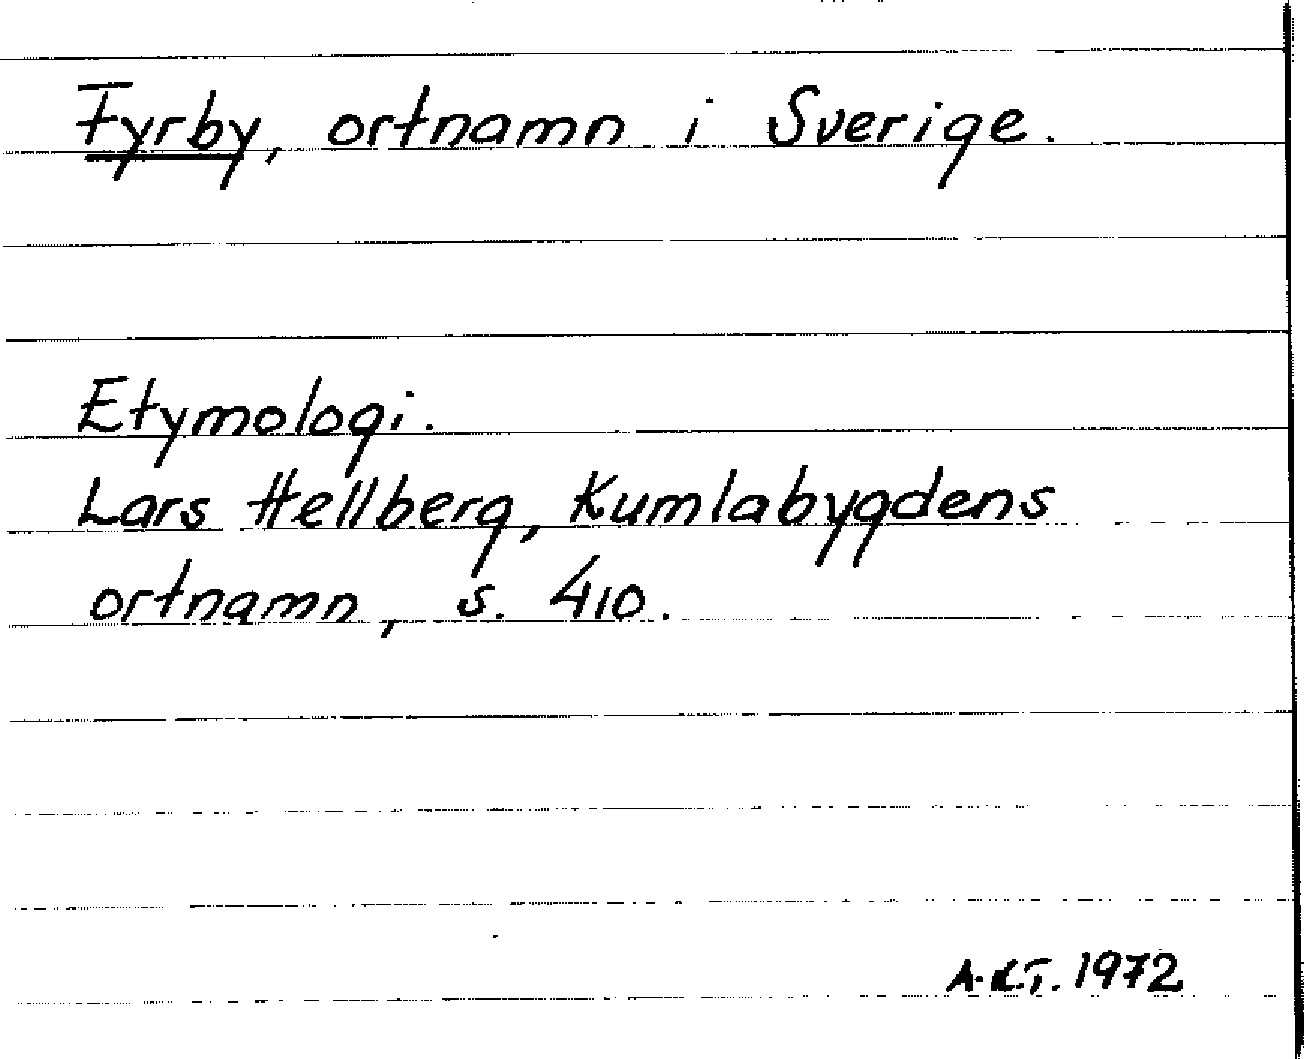 Fyrby, ortnamn i Sverige.
Etymologi.
Lars Hellberg, Kumlabygdens
ortnamn, s. 410.
A.R.T. 1972